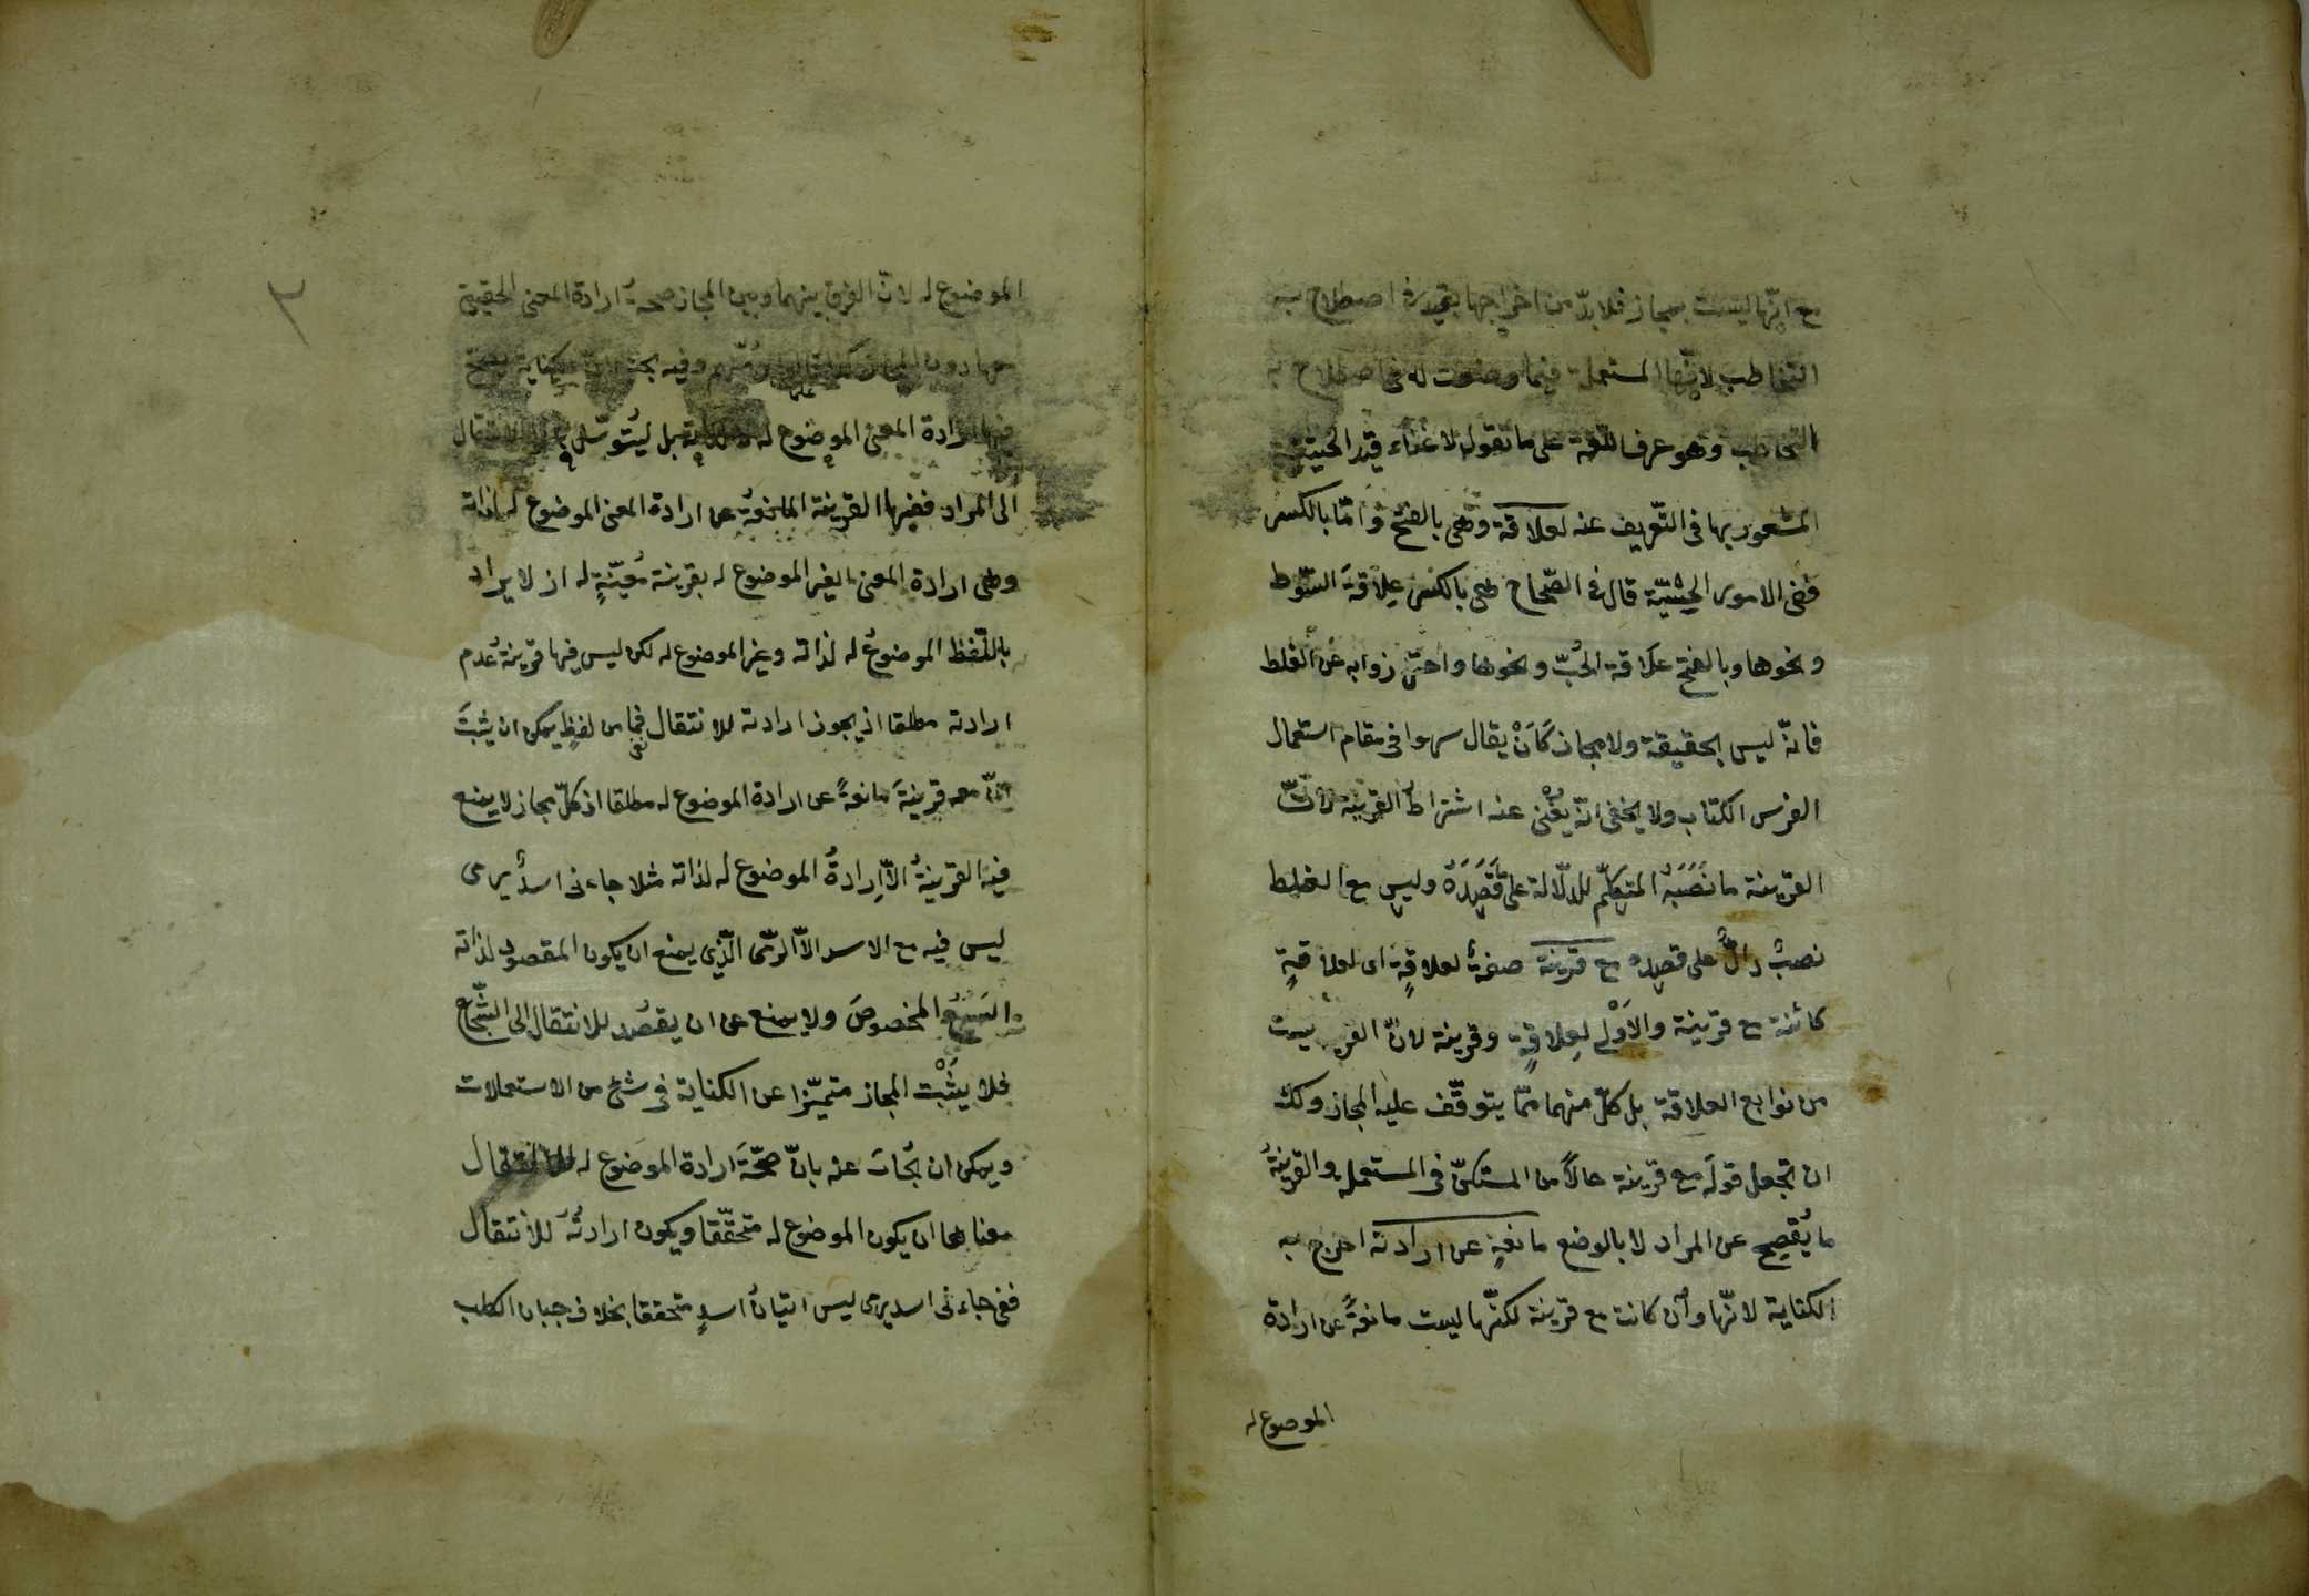 مع انّها ليست بمجاز فلا بدّ من اخراجها بقيد في اصطلاح به
التخاطب لانّها المستعملة فيما وضعت له فى اصطلاح به
التخاطب وهو عرف اللغة على ما تقول لا غناء قيد الحيثية
المشعور بها فى التّعريف عنه لعلاقة وهى بالفتح وامّا بالكسر
ففى الامور الحسّيّة قال فى الصّحاح هى بالكسر عِلاقة السّوط
ونحوها وبالفتح عَلاقة الحُبّ ونحوها واحترز به عن الغلط
فانّه ليس بحقيقة ولا مجاز كَاَنْ يقال سهوا فى مقام استعمال
الفرس الكتاب ولا يخفى انّه يغنى عنه اشتراط القرينة لانّ
القرينة ما نَصَبَهُ المتكلّم للدّلالة على قَصْدِهُ وليس مع الغلط
نصبُ دالٍّ على قصده مع قرينة صفةُ لعلاقةٍ اى لعلاقةٍ
كائنة مع قرينة والاَوْلى لِعلاقةٍ وقرينة لانّ القر ليست
من توابع العلاقة بل كلّ منهما ممّا يتوقّف عليه المجاز ولك
ان تجعل قولَه مع قرينة حالاً من المستكنّ فى المستعملة والقرينةُ
ما يُفصِح عن المراد لا بالوضع مانعةٍ عن ارادته اخرج به
الكناية لانّها وأن كانت مع قرينة لكنّها ليست مانعةً عن ارادة
الموضوع له
٢
الموضوع له لانّ الفرق بينهما وبين المجاز صحةُ ارادة المعنى الحقيقى
معها دون المجاز وفيه بحث لانّ الكناية تصحّ
فيها ارادة المعنى الموضوع له لا لذاته بل ليُتوسّل به الى الانتقال
الى المراد ففيها القرينة المانعةُ عن ارادة المعنى الموضوع له لذاته
وهى ارادة المعنى الغير الموضوع له بقرينة مُعيّنةٍ له اذ لا يراد
باللّفظ الموضوعُ له لذاته وغير الموضوع له لكن ليس فيها قرينةُ عدم
ارادته مطلقا اذ يجوز ارادته للانتقال فما من لفظٍ يمكن ان يثبتَ
انّ معه قرينةً مانعةً عن ارادة الموضوع له مطلقا اذ كلّ مجاز لا يمنع
فيه القرينةُ الاّ اِرادةَ الموضوع له لذاته مثلا جاءنى اسدٌ يرمى
ليس فيه مع الاسد الاّ الرّمى الّذى يمنع ان يكون المقصود لذاته
السَبُعُ المخصوصَ ولا يمنع عن ان يقصُد للانتقال الى الشّجاع
فلا يثْبُت المجاز متميّزا عن الكناية فى شئ من الاستعمالات
ويمكن ان يُجابَ عنه بانّ صحّةَ ارادة الموضوع له للانتقال
معناها ان يكون الموضوع له متحقّقا ويكون ارادتُه للانتقال
ففى جاءنى اسد يرمى ليس اتيانُ اسدٍ متحققا بخلاف جبان الكلب